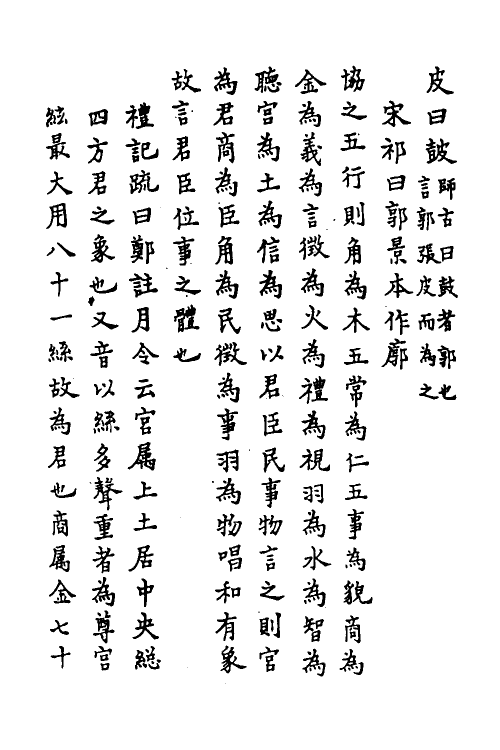 皮曰鼓師古曰鼓者郭也
言郭張皮而為之
宋祁曰郭景本作廓
協之五行則角為木五常為仁五事為貌商為
金為義為言徵為火為禮為視羽為水為智為
聽宫為土為信為思以君臣民事物言之則宫
為君商為臣角為民徵為事羽為物唱和有象
故言君臣位事之體也
禮記疏曰鄭註月令云宫属上土居中央緫
四方君之象也又音以絲多聲重者為尊宫
絃最大用八十一絲故為君也商属金七十